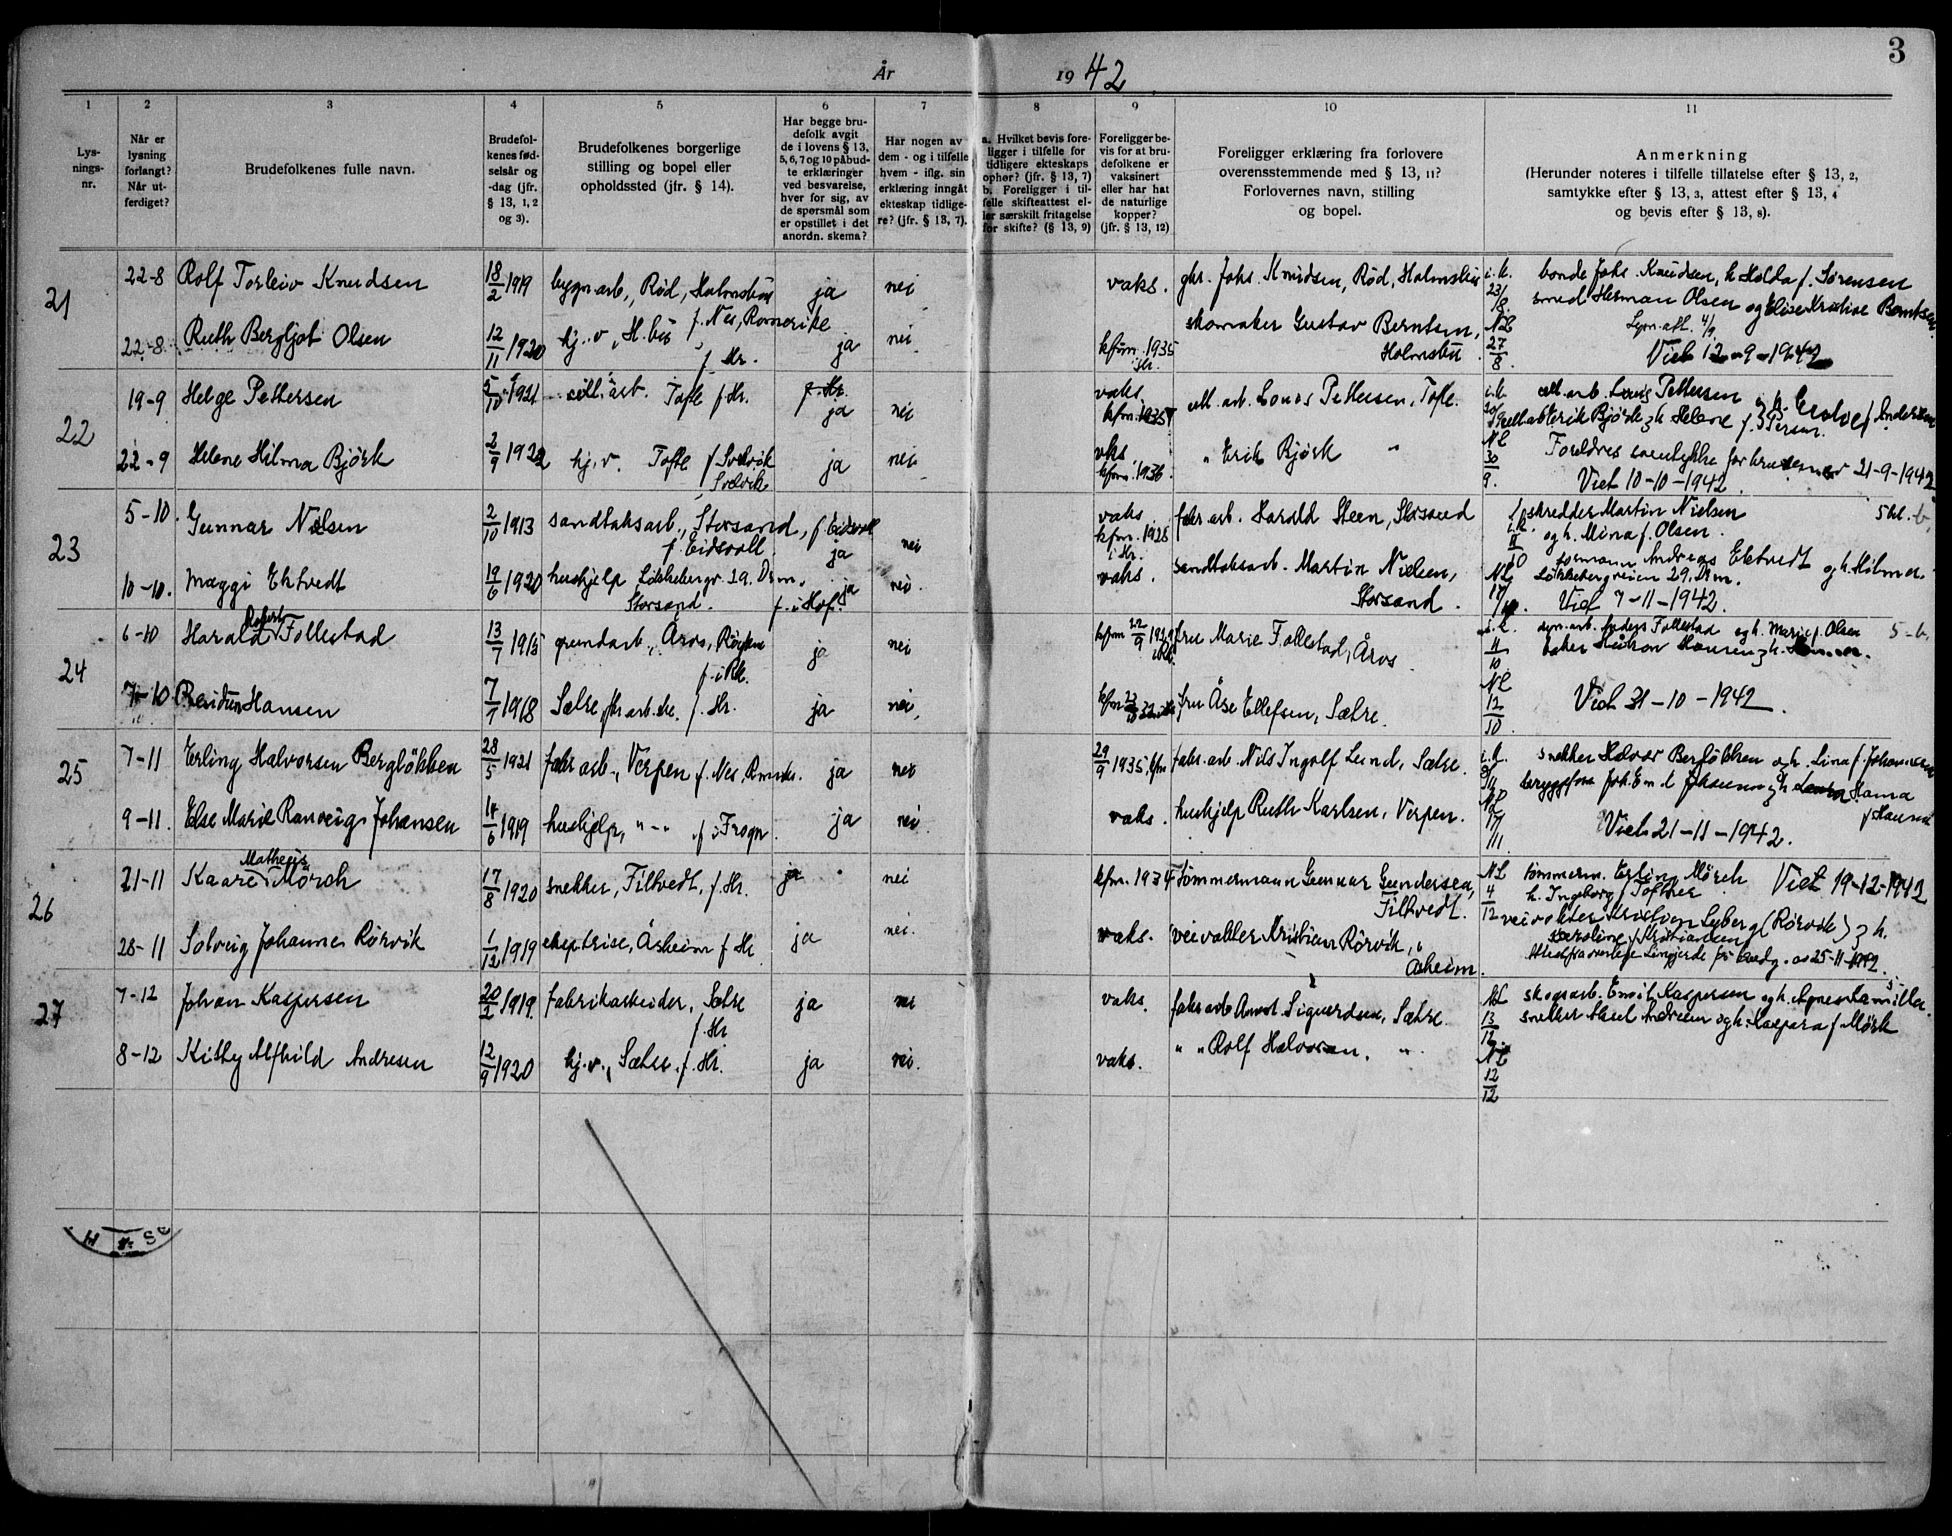 3
År 1942
1 2 3 4 5 6 7 8 9 10 11
Lysnings-nr.
Når er lysning forlangt? Når utferdiget?
Brudefolkenes fulle navn.
Brudefolkenes fødselsår og -dag (jfr. § 13, 1, 2 og 3).
Brudefolkenes borgerlige stilling og bopel eller opholdssted (jfr. § 14).
Har begge brudefolk avgit de i lovens § 13, 5, 6, 7 og 10 påbudte erklæringer ved besvarelse, hver for sig, av de spørsmål som er opstillet i det anordn. skema?
Har nogen av dem - og i tilfelle hvem - iflg. sin erklæring inngåt ekteskap tidligere? (jfr. § 13, 7).
a. Hvilket bevis foreligger i tilfelle for tidligere ekteskaps ophør? (jfr. § 13, 7) b. Foreligger i tilfelle skifteattest eller særskilt fritagelse for skifte? (§ 13, 9)
Foreligger bevis for at brudefolkene er vaksinert eller har hat de naturlige kopper? (jfr. § 13, 12)
Foreligger erklæring fra forlovere overensstemmende med § 13, 11? Forlovernes navn, stilling og bopel.
Anmerkning (Herunder noteres i tilfelle tillatelse efter § 13, 2, samtykke efter § 13, 3, attest efter § 13, 4 og bevis efter § 13, 8).
21
22-8 Rolf Torleiv Knudsen 18/2 1919 bygn.arb., Rød, Holmsbu f. Nes, Romerike ja nei vaks. Johs. Knudsen, Rød, Holmsbu i.k. 23/8 bonde Johs. Knudsen, h. Holda f. Sørensen
22-8 Ruth Bergljot Olsen 12/11 1920 hj.v., H.bu, f. Hr. ja nei kfm. 1935 Hr. skomaker Gustav Berntsen, Holmsbu NL 27/8 smed Herman Olsen og
Lysn. afl. 4/9
Viet 12-9-1942
22
19-9 Helge Pettersen 5/10 1921 cell.arb. Tofte f. Hr. ja nei vaks. kfm. 1935 cell.arb. Louis Pettersen, Tofte. i.k. cell.arb. Louis Pettersen
22-9 Helene Hilma Bjørk 2/9 1922 hj.v. Tofte f. Svelvik Svelvik ja nei vaks. kfm. 1936. " Erik Bjørk " NL 30/9. Erik Bjørk og h. Helene f. Person.
Foreldres samtykke for bruden av 21-9-1942
Viet 10-10-1942.
23
5-10. Gunnar Nielsen 2/10 1913 sandtaksarb., Storsand, f. Eidsvoll f. Eidsvoll. ja nei vaks kfm. 1928 i Hr. fabr.arb. Harald Steen, Storsand i.k. skredder Martin Nielsen og h. Mina f. Olsen. 5 kl. b.
10-10. Maggi Ektvedt 19/6 1920 hushjelp Løkkebergv. 29. Drm. Storsand. f. i Hof. ja nei. vaks. sandtaksarb. Martin Nielsen, Storsand. NL formann Andreas Ektvedt og h. Hilma.
Løkkebergveien 29. Drm.
Viet 7-11-1942.
24
6-10 Harald Robert Follestad 13/7 1915 grundarb., Åros, Røyken f. i Rk. ja nei kfm 22/9 1929 i Rk. fru Marie Follestad, Åros i.k. Anders Follestad og h. Marie f. Olsen 5-b.
7-10 Reidun Hansen 7/7 1918 Sætre, fbr.arb.ske. f. Hr. ja nei, kfm fru Åse Ellefsen, Sætre. NL 12/10 baker Håkon Hansen og h.
Viet 31-10-1942.
25
7-11 Erling Halvorsen Bergløkken 28/5 1921 fabr.arb., Verpen f. Nes, Romrk. ja nei 29/9 1935, kfm fabr.arb. Nils Ingolf Lund, Sætre. i.k. snekker Halvor Bergløkken og h. Lina f. Johannesen
9-11. Else Marie Ranveig Johansen 14/6 1919 hushjelp, "-" f. i Frogn ja nei vaks. hushjelp Ruth Karlsen, Verpen. bryggform Joh. Emil Johansen og h. Hanna f. Hansen
Viet 21-11-1942.
26
21-11 Kaare Matheus Mörch 17/8 1920 snekker, Filtvedt, f. Hr. ja nei kfm. 1934 Tømmermann Gunnar Gundersen, Filtvedt. NL 4/12 tømmerm. Erling Mörch h. Ingeborg f. Toftner Viet 19-12-1942
28-11 Solveig Johanne Rörvik 1/12 1919 ekspetrise, Åsheim f. Hr. ja nei. vaks. veivokter Kristian Rörvik, Åsheim. veivokter Kristian Syberg (Rörvik) og h. Karoline f. Kristiansen
25-11-1942.
27
7-12 Johan Kaspersen 20/2 1919. fabrikarbeider, Sætre f. Hr ja nei vaks. fabr.arb. Arnt Sigurdsen, Sætre. NL 13/12 skogsarb. Emil Kaspersen og h. Agnes Kamilla.
8-12 Kitty Alfhild Andresen 12/9 1920 hj.v., Sætre. f. Hr. ja nei. vaks. " " Rolf Halvorsen, ". NL 12/12 snekker Aksel Andresen og h. Kaspara f. Mörk